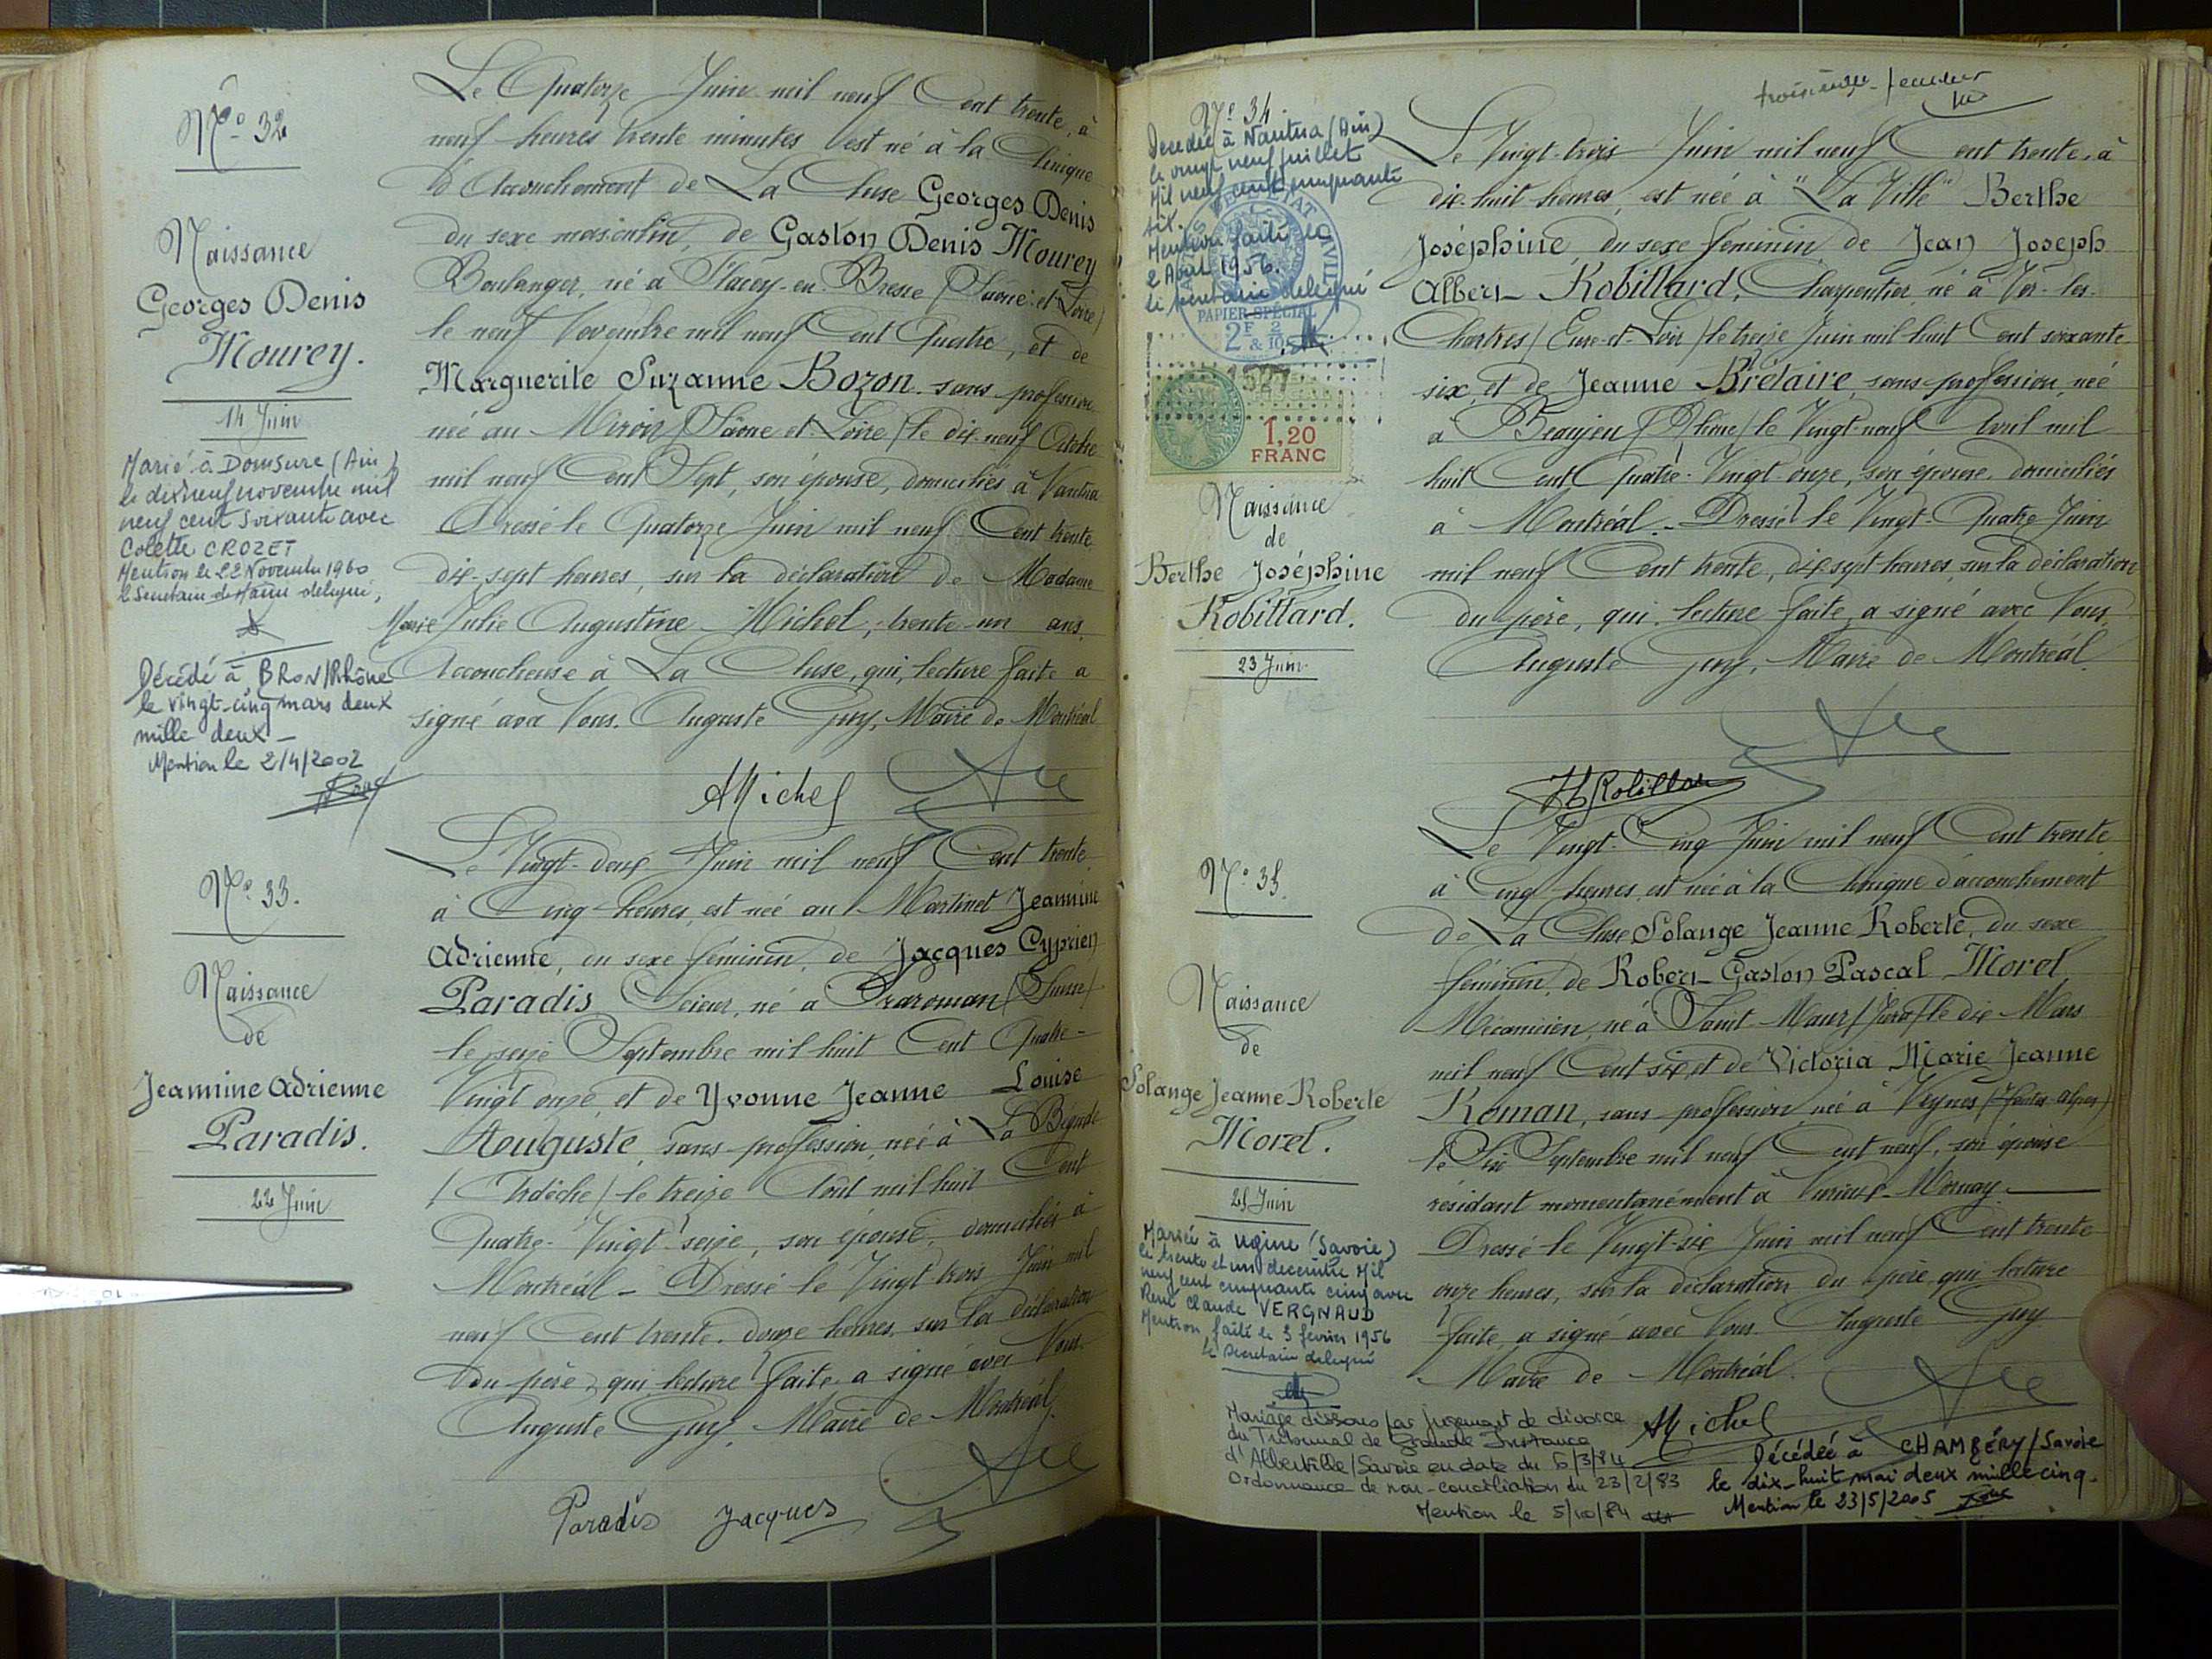 N° 32
Naissance
Georges Denis
Mourey.
14 Juin
Marié à Domsure (Ain)
le dix neuf novembre mil
neuf cent soixante avec
Colette CROZET
Mention le 22 Novembre 1960
le Secrétaire de Mairie délégué,
Décédé à BRON/Rhône
le vingt-cinq mars deux
mille deux -
Mention le 2/4/2002
Le Quatorze Juin mil neuf Cent trente, à
neuf heures trente minutes est né à la Clinique
d'Accouchement de La Cluse Georges Denis
du sexe masculin, de Gaston Denis Mourey
Boulanger, né à Flacey-en-Bresse (Saône-et-Loire)
le neuf Novembre mil neuf Cent Quatre, et de
Marguerite Suzanne Bozon sans profession
née au Miroir (Saône et Loire) le dix-neuf Octobre
mil neuf Cent Sept, son épouse, domiciliés à Nantua
Dressé le Quatorze Juin mil neuf Cent trente
dix-sept heures, sur la déclaration de Madame
Marie Julie Augustine Michel, trente-un ans,
Accoucheuse à La Cluse, qui, lecture faite a
signé avec Nous. Auguste Guy, Maire de Montréal
AMichel
N° 33.
Naissance
de
Jeannine Adrienne
Paradis.
22 Juin
Le Vingt-deux Juin mil neuf Cent trente
à Cinq heures, est née au Martinet Jeannine
Adrienne, du sexe féminin, de Jacques Cyprien
Paradis, Scieur, né à Praroman (Suisse)
le seize Septembre mil huit Cent Quatre-
Vingt onze, et de Yvonne Jeanne Louise
Auguste, sans profession, née à La Bégude
(Ardèche) le treize Août mil huit Cent
Quatre-Vingt-seize, son épouse, domiciliés à
Montréal - Dressé le Vingt trois Juin mil
neuf Cent trente, douze heures, sur la déclaration
du père, qui lecture faite a signé avec Nous.
Auguste Guy, Maire de Montréal.
Paradis Jacques
N° 34
Décédée à Nantua (Ain)
le vingt neuf juillet
Mil neuf cent cinquante
six.
Mention faite le
2 Août 1956.
le secrétaire délégué
PAPIER SPÉCIAL
2F & 2/10
1,20
FRANC
Naissance
de
Berthe Joséphine
Robillard.
23 Juin
troisième feuillet
Le Vingt-trois Juin mil neuf Cent trente, à
dix-huit heures, est née à "La Ville" Berthe
Joséphine, du sexe féminin, de Jean Joseph
Albert Robillard, Charpentier, né à Ver-les-
Chartres (Eure-et-Loir) le treize Juin mil huit Cent soixante
six, et de Jeanne Brélaire, sans profession, née
à Beaujeu (Rhône) le Vingt-neuf Avril mil
huit Cent Quatre-Vingt onze, son épouse, domiciliés
à Montréal - Dressé le Vingt-Quatre Juin
mil neuf Cent trente, dix-sept heures, sur la déclaration
du père, qui, lecture faite, a signé avec Nous,
Auguste Guy, Maire de Montréal.
N° 35.
Naissance
de
Solange Jeanne Roberte
Morel.
25 Juin
Mariée à Ugine (Savoie)
le trente et un décembre Mil
neuf cent cinquante cinq avec
René Claude VERGNAUD
Mention faite le 3 février 1956
le Secrétaire délégué
Le Vingt-Cinq Juin mil neuf Cent trente
à Cinq heures, est née à la Clinique d'accouchement
de La Cluse Solange Jeanne Roberte, du sexe
féminin, de Robert Gaston Pascal Morel,
Mécanicien, né à Saint-Maur (Jura) le dix Mars
mil neuf Cent six, et de Victoria Marie Jeanne
Roman, sans profession, née à Veynes (Hautes-Alpes)
le Six Septembre mil neuf Cent neuf, son épouse
résidant momentanément à Vurieux-Mornay
Dressé le Vingt-six Juin mil neuf Cent trente
onze heures, sur la déclaration du père, qui lecture
faite, a signé avec Nous. Auguste Guy
Maire de Montréal.
AMichel
Mariage dissous par jugement de divorce
du Tribunal de Grande Instance
d'Albertville/Savoie en date du 6/3/84
Ordonnance de non-conciliation du 23/2/83
Mention le 5/10/84
Décédée à CHAMBÉRY/Savoie
le dix-huit mai deux mille cinq.
Mention le 23/5/2005